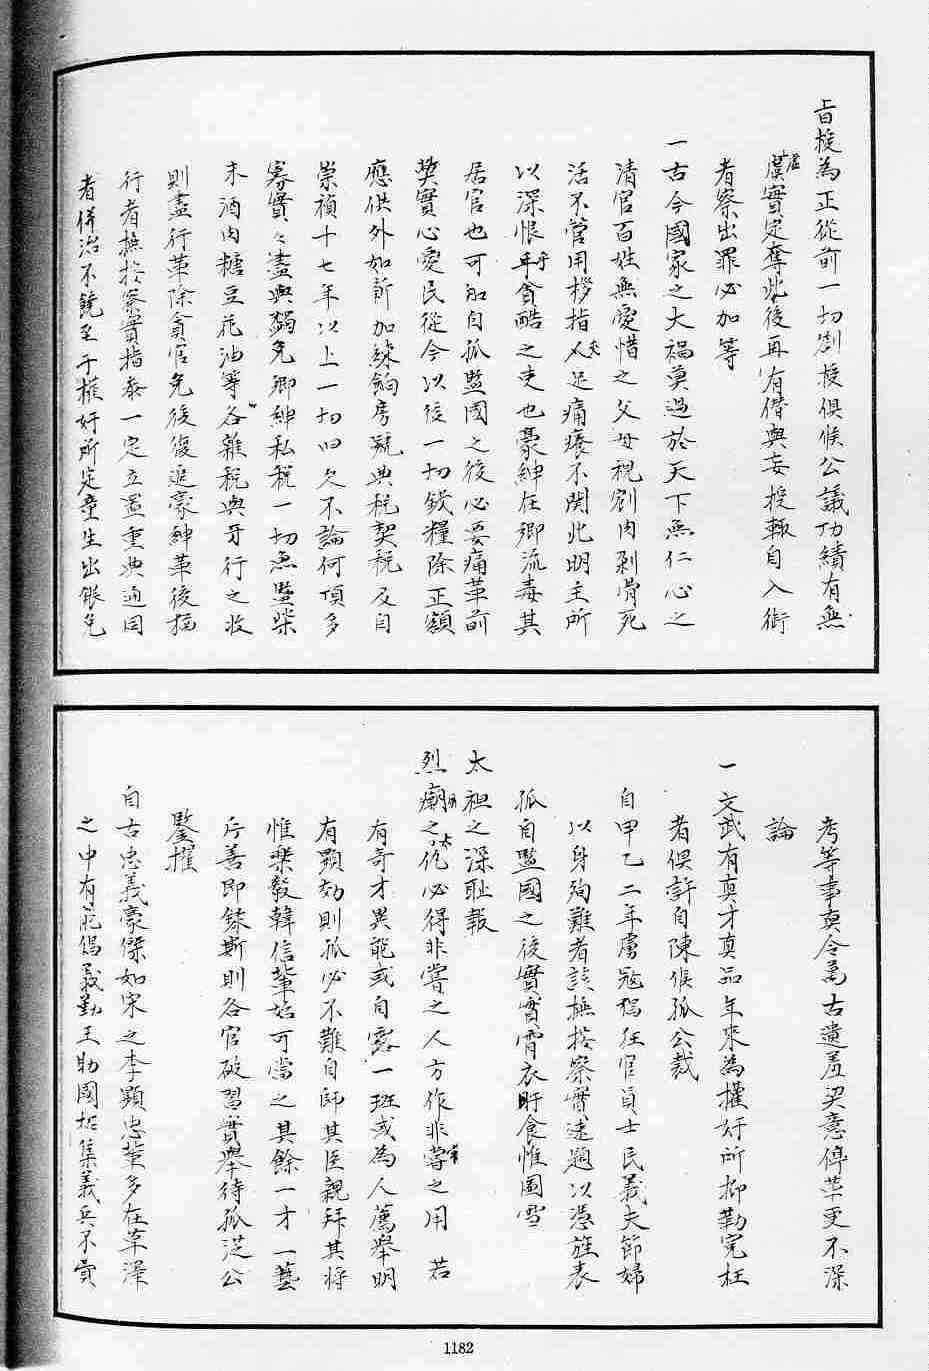 旨授為正從前一切劄授俱候公議功績有無
虛實定奪此後再有僭與妄授輙自入衘
者察出罪必加等
一古今國家之大禍莫過於天下無仁心之
清官百姓無愛惜之父母視剜肉剥骨死
活不管用桚指夾足痛癢不関此明主所
以深恨于年貪酷之吏也豪紳在鄉流毒其
居官也可知自孤監國之後必要痛革前
獘實心愛民從今以後一切錢糧除正額
應供外如新加練餉房號典税契税及自
崇禎十七年以上一切旧欠不論何項多
寡實實盡與蠲免鄉紳私税一切魚鹽柴
米酒肉糖豆花油等各雜税與牙行之收
則盡行革除貪官免後復追豪紳革後擅
行者撫按察實指泰一定立置重典通同
者併治不饒至于權奸所定童生出銀免
考等事真令萬古遺羞梁意俾革更不深
論
一文武有真才真品年來為權奸所抑勒寃枉
者俱許自陳候孤公裁
自甲乙二年虜寇猖狂官員士民義夫節婦
以身殉難者該撫按察實速題以憑旌表
孤自監國之後實實宵衣旰食惟圖雪
太祖之深耻報
烈廟之大仇必得非嘗之人方作非嘗之用 若
有奇才異能或自露一班或為人薦舉明
有顯効則孤必不難自師其臣親拜其將
惟樂毅韓信輩始可當之其餘一才一藝
片善即錄斯則各官破習實舉待孤從公
鑒擢
自古忠義豪傑如宋之李顯忠輩多在草澤
之中有能倡義勤王助國招集義兵不賫
1182